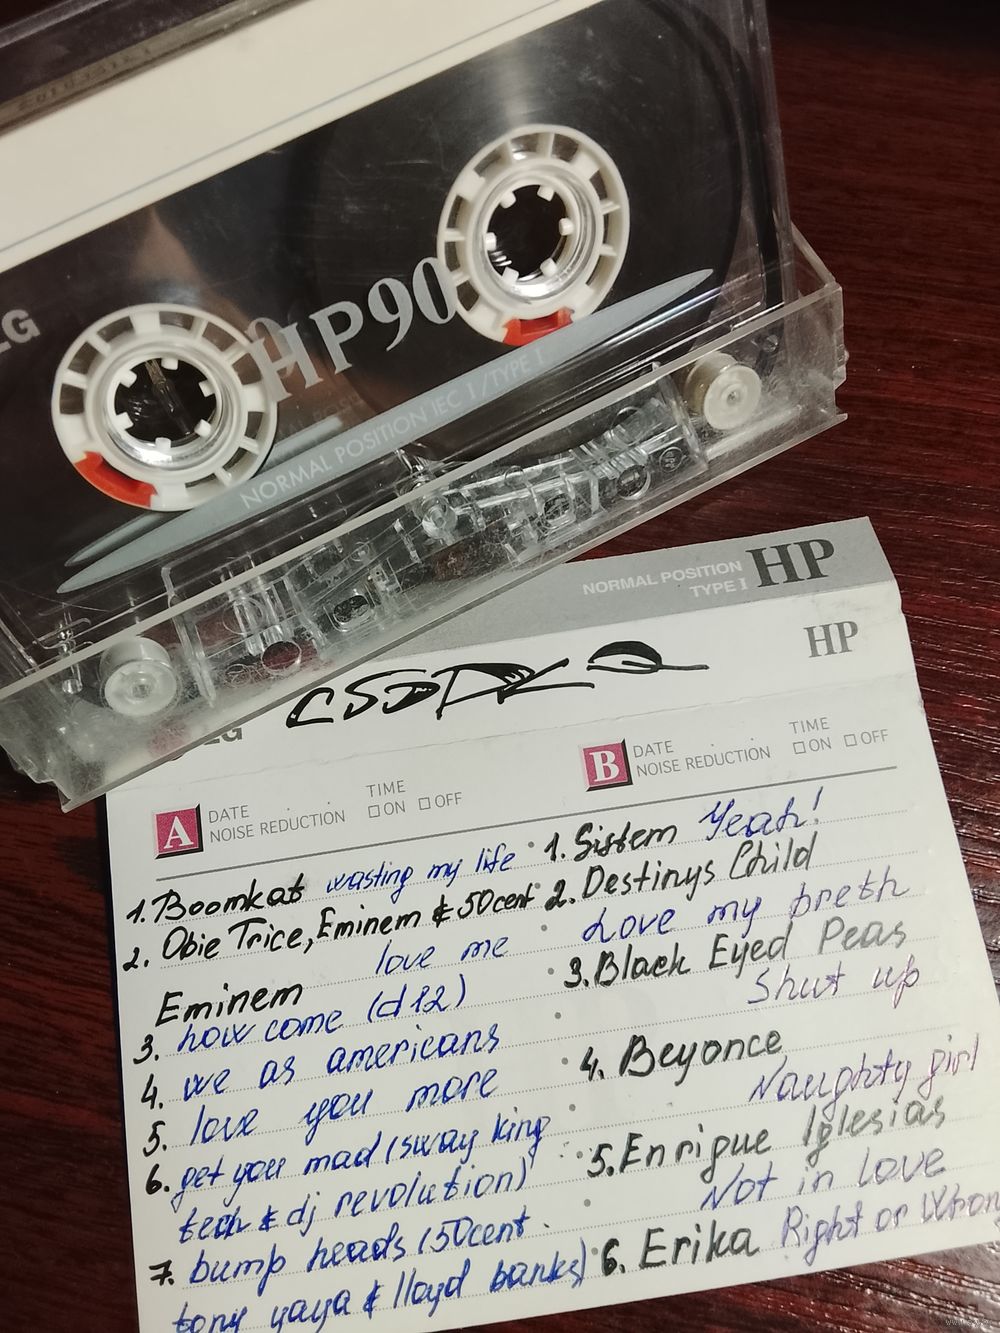 LG
HP90
NORMAL POSITION IEC I/TYPE I
NORMAL POSITION
TYPE I
HP
HP
LG
A
DATE
NOISE REDUCTION
TIME
ON OFF
B
DATE
NOISE REDUCTION
TIME
ON OFF
1. Boomkat wasting my life
2. Obie Trice, Eminem & 50cent
love me
Eminem
3. how come (d12)
4. we as americans
5. love you more
6. get you mad (sway king
tech & dj revolution)
7. bump heads (50cent
tony yaya & lloyd banks)
1. Sistem Yeah!
2. Destinys Child
Love my breth
3. Black Eyed Peas
Shut up
4. Beyonce
Naughty girl
5. Enrique Iglesias
Not in love
6. Erika Right or Wron